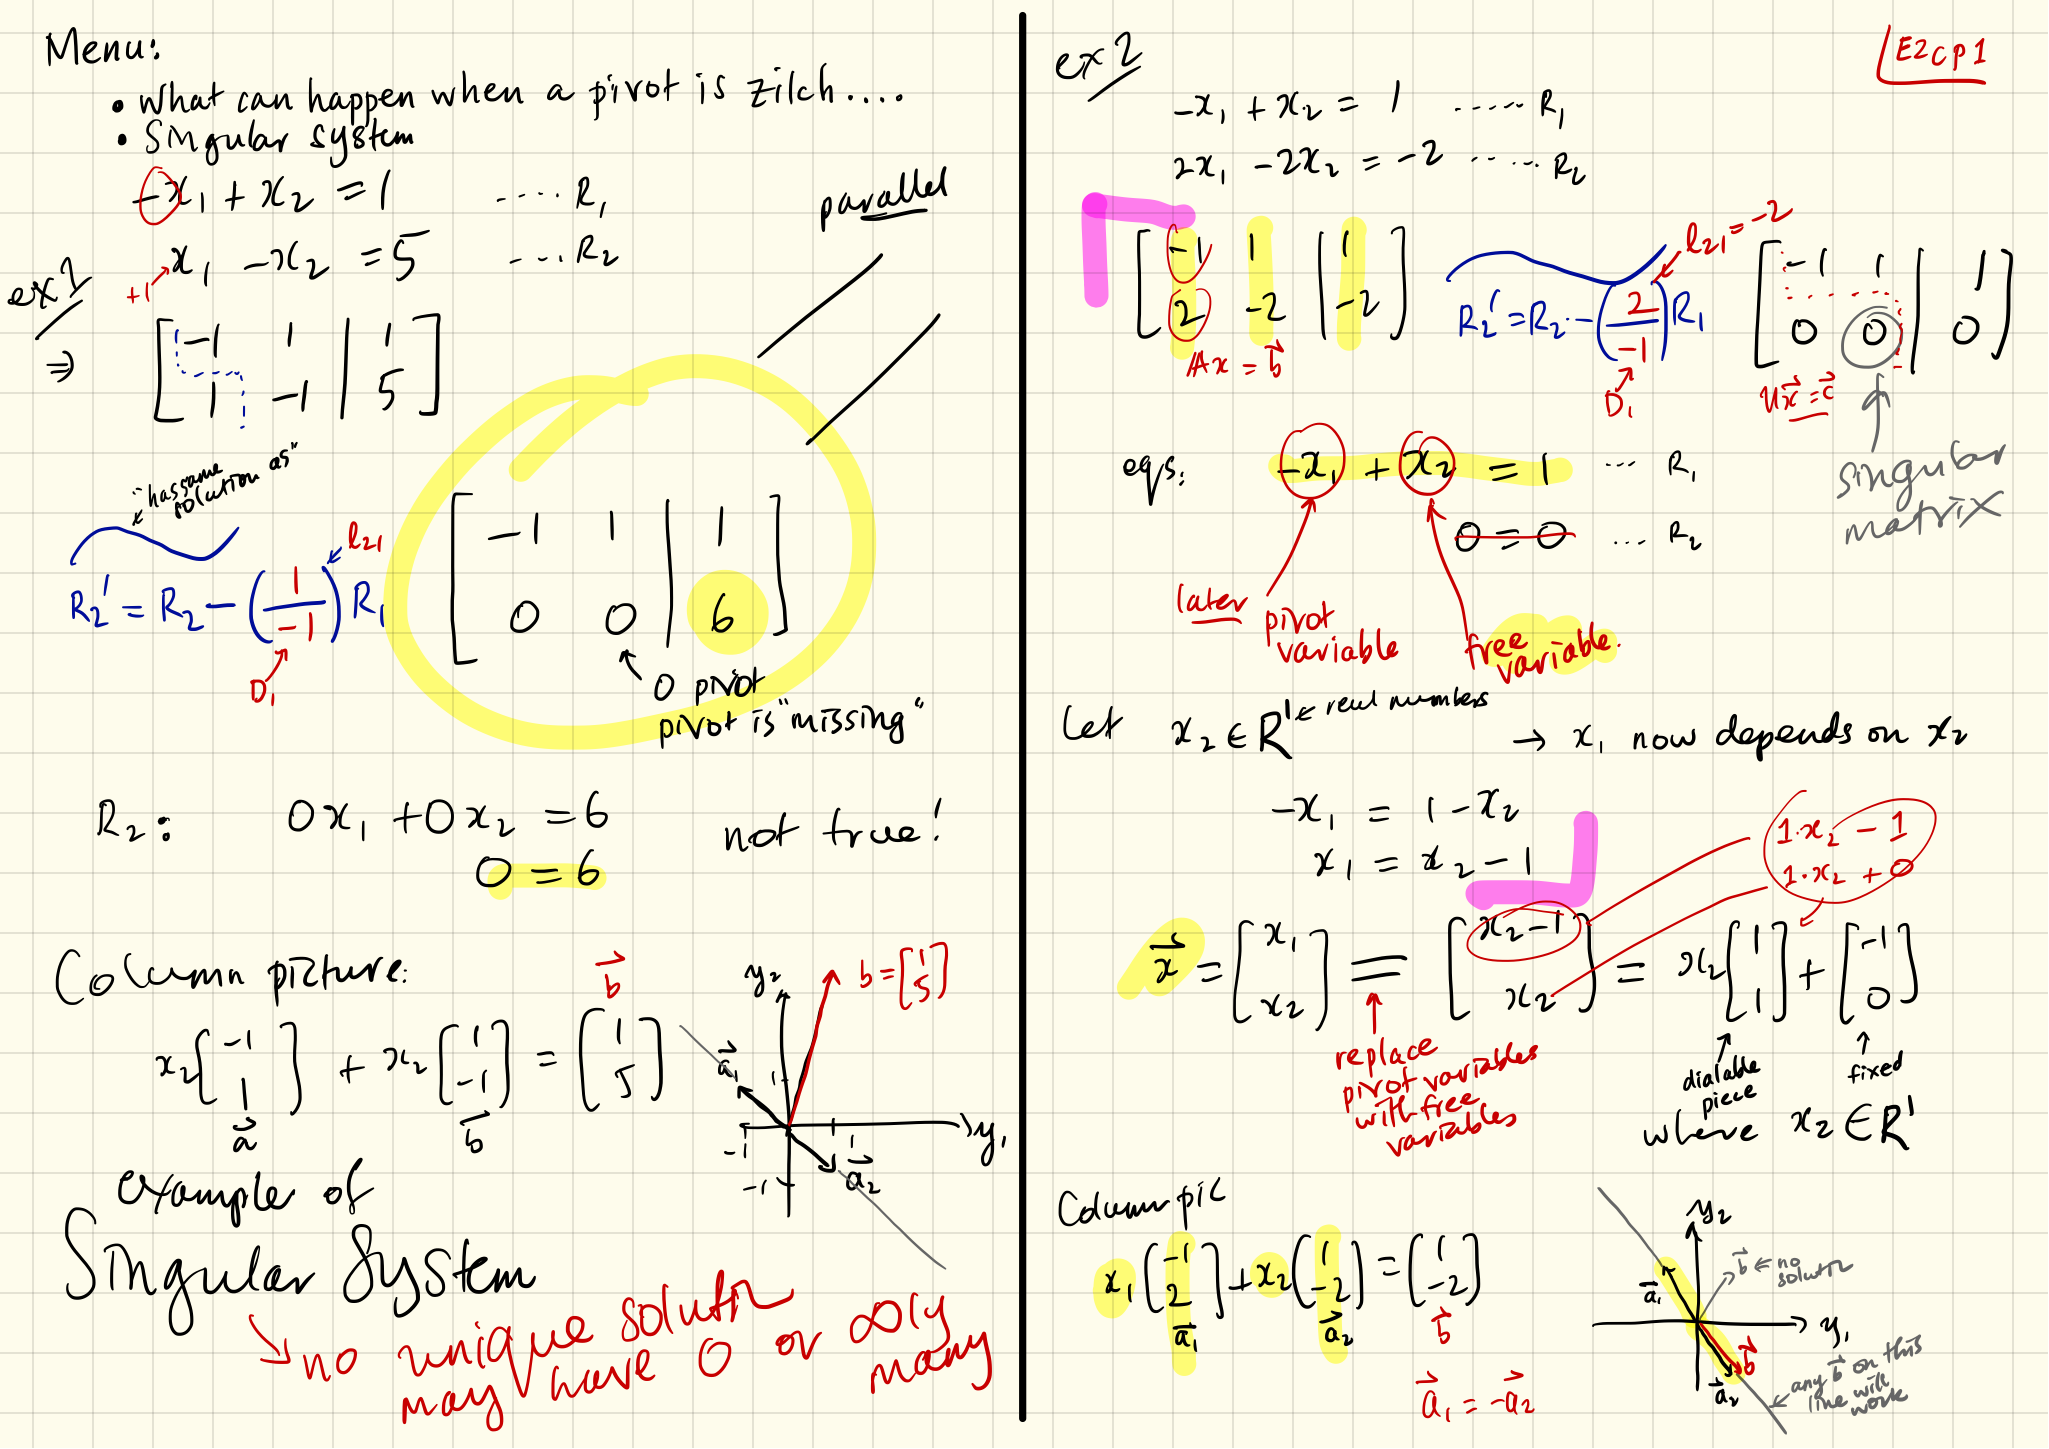 Menu:
• What can happen when a pivot is zilch....
• Singular system
ex1
-x₁ + x₂ = 1 ..... R₁
+1
x₁ - x₂ = 5 ... R₂
⇒ [ -1 1 | 1 ]
[ 1 -1 | 5 ]
parallel
"has same
solution as"
R₂' = R₂ - (1/-1) R₁
l₂₁
D₁
[ -1 1 | 1 ]
[ 0 0 | 6 ]
0 pivot
pivot is "missing"
R₂: 0x₁ + 0x₂ = 6 not true!
0 = 6
Column picture:
x₂ [ -1 1 ] + x₂ [ 1 -1 ] = [ 1 5 ]
a⃗ b⃗ b⃗
y₂
b = [ 1 5 ]
a⃗₁
1
y₁
-1 1
a⃗₂
-1
example of
Singular System
→ no unique solutn
may have 0 or ∞ly
many
E2CP1
ex2
-x₁ + x₂ = 1 ...... R₁
2x₁ - 2x₂ = -2 ...... R₂
[ -1 1 | 1 ]
[ 2 -2 | -2 ]
Ax = b⃗
R₂' = R₂ - (2/-1) R₁
l₂₁ = -2
D₁
[ -1 1 | 1 ]
[ 0 0 | 0 ]
Ux⃗ = c⃗
singular
matrix
eqs: -x₁ + x₂ = 1 ... R₁
0 = 0 ... R₂
later pivot
variable
free
variable.
Let x₂ ∈ R¹ ← real numbers → x₁ now depends on x₂
-x₁ = 1 - x₂
x₁ = x₂ - 1
1·x₂ - 1
1·x₂ + 0
x⃗ = [ x₁ x₂ ] = [ x₂-1 x₂ ] = x₂ [ 1 1 ] + [ -1 0 ]
replace
pivot variables
with free
variables
dialable
piece
fixed
where x₂ ∈ R¹
Column pic
x₁ [ -1 2 ] + x₂ [ 1 -2 ] = [ 1 -2 ]
a⃗₁ a⃗₂ b⃗
a⃗₁ = -a⃗₂
y₂
b⃗ ← no
solutn
a⃗₁
y₁
b⃗
a⃗₂
any b⃗ on this
line will
work